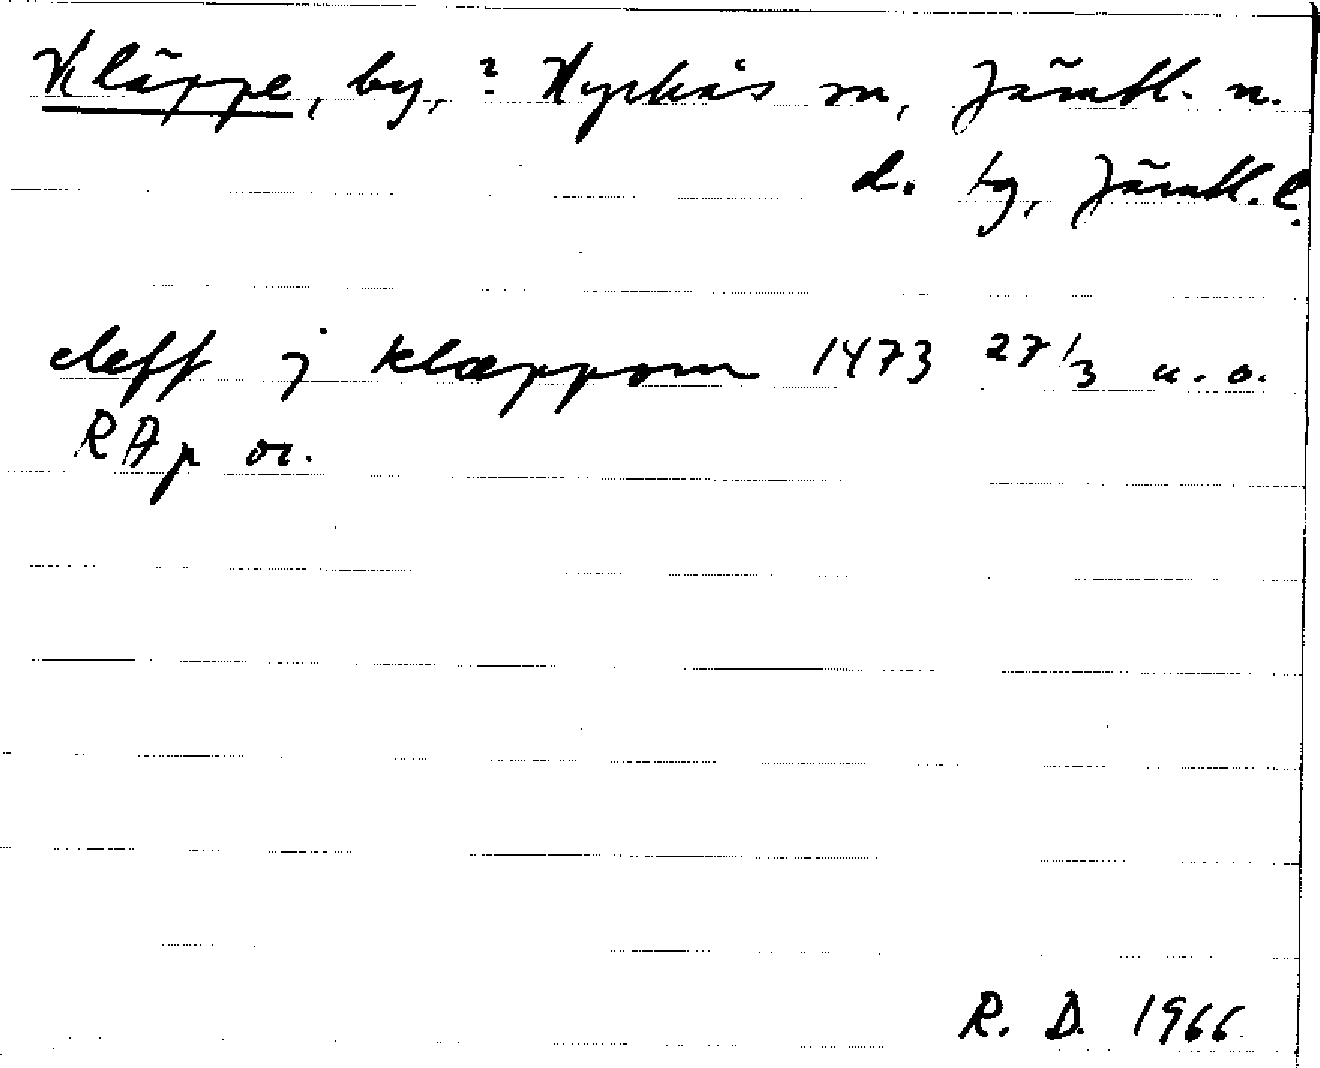 Kläppe, by, ? Kyrkås sn, Jämtl. n.
d. tg, Jämtl. l.
cleff j klæppom 1473 27/3 u. o.
RAp or.
R. D. 1966